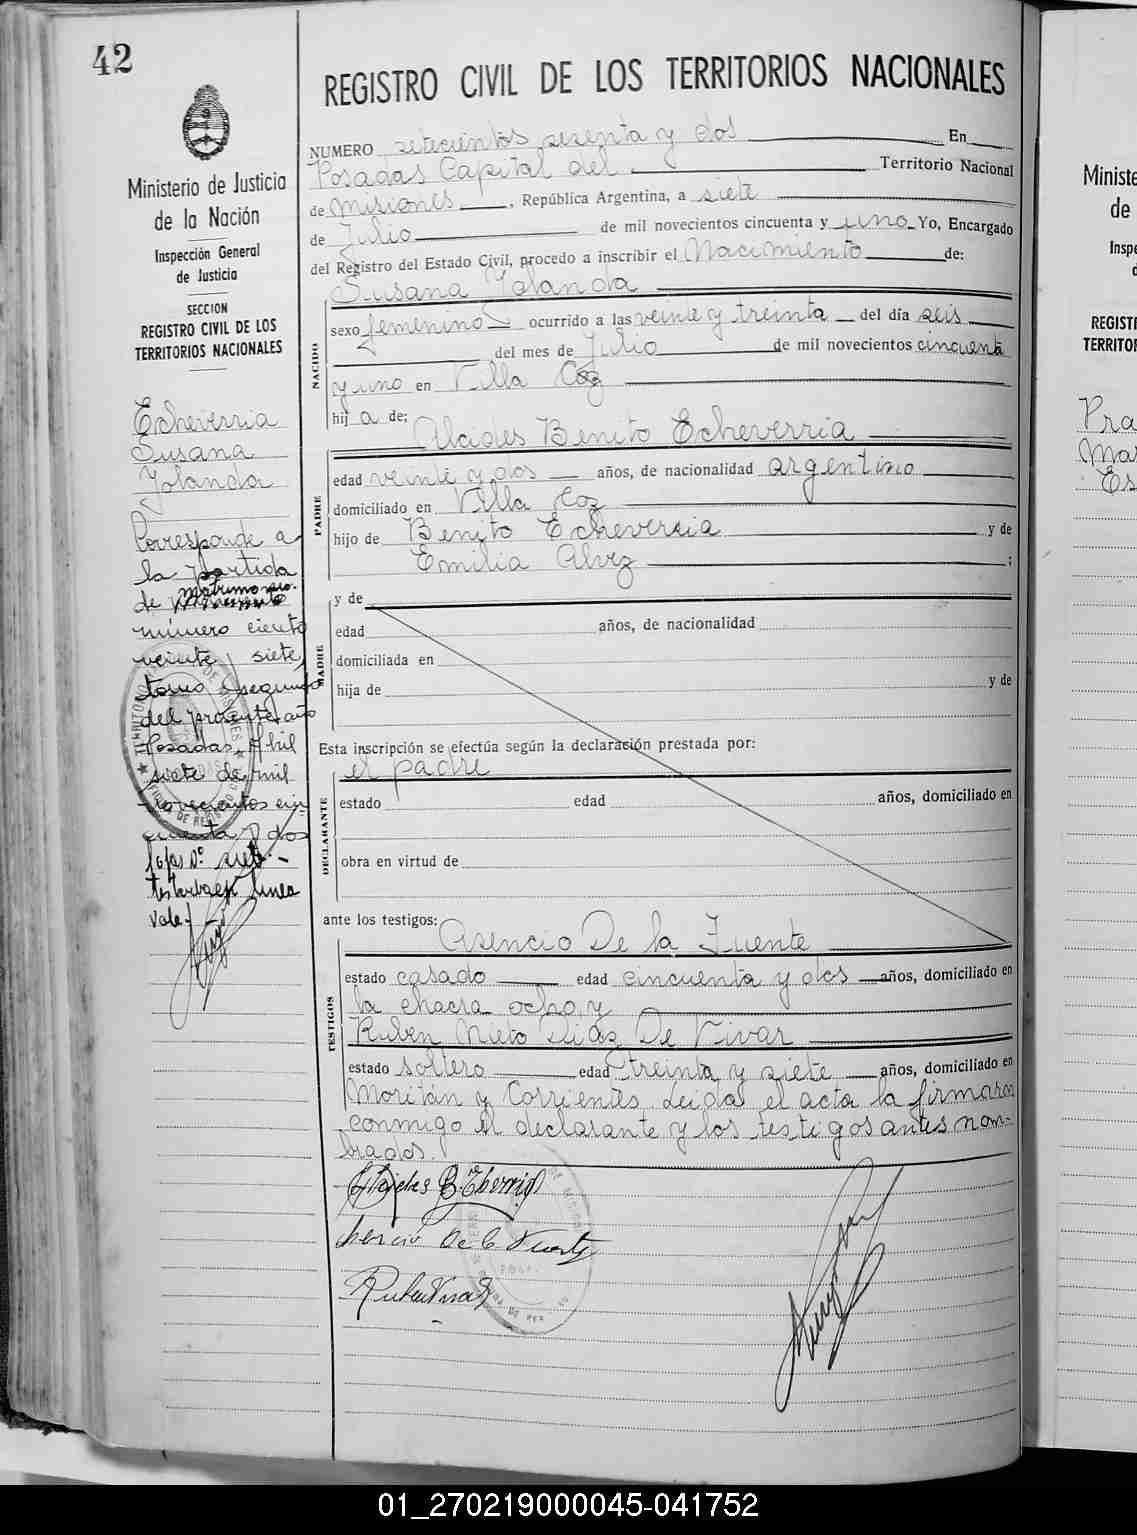 42
Ministerio de Justicia
de la Nación
Inspección General
de Justicia
SECCION
REGISTRO CIVIL DE LOS
TERRITORIOS NACIONALES
Echeverria
Susana
Yolanda
Corresponde a
la partida
de matrimonio.
número ciento
veinte y siete,
tomo segundo
del presente año
Posadas, Abril
siete de mil
novecientos cin
cuenta y dos
fojas Nº siete.-
testado linea
vale.-
REGISTRO CIVIL DE LOS TERRITORIOS NACIONALES
NUMERO setecientos sesenta y dos En
Posadas Capital del Territorio Nacional
de Misiones, República Argentina, a siete
de Julio de mil novecientos cincuenta y uno Yo, Encargado
del Registro del Estado Civil, procedo a inscribir el Nacimiento de:
Susana Yolanda
NACIDO
sexo femenino ocurrido a las veinte y treinta del día seis
del mes de Julio de mil novecientos cincuenta
y uno en Villa Coz
hij a de:
Alcides Benito Echeverria
PADRE
edad veinte y dos años, de nacionalidad argentino
domiciliado en Villa Coz
hijo de Benito Echeverria y de
Emilia Alvez ;
MADRE
y de
edad años, de nacionalidad
domiciliada en
hija de y de
Esta inscripción se efectúa según la declaración prestada por:
el padre
DECLARANTE
estado edad años, domiciliado en
obra en virtud de
ante los testigos:
Asencio De la Fuente
TESTIGOS
estado casado edad cincuenta y dos años, domiciliado en
la chacra ocho y
Ruben Nieto Diaz De Vivar
estado soltero edad treinta y siete años, domiciliado en
Moritán y Corrientes. Leida el acta la firmaron
conmigo el declarante y los testigos antes nom-
brados.
Alcides B. Echeverria
Asencio De la Fuente
Ruben Vivar
Ministe
de
Inspe
d
REGISTR
TERRITOR
Pra
Mar
Es
01_270219000045-041752